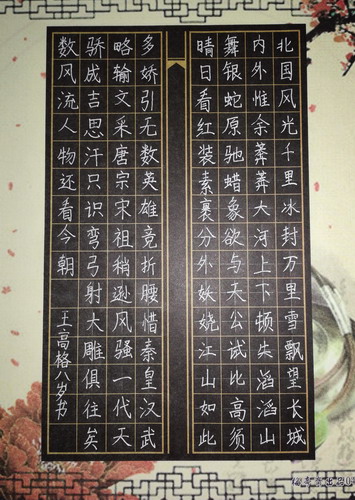 北国风光千里冰封万里雪飘望长城
内外惟余莽莽大河上下顿失滔滔山
舞银蛇原驰蜡象欲与天公试比高须
晴日看红装素裹分外妖娆江山如此
多娇引无数英雄竞折腰惜秦皇汉武
略输文采唐宗宋祖稍逊风骚一代天
骄成吉思汗只识弯弓射大雕俱往矣
数风流人物还看今朝
王高格八岁书